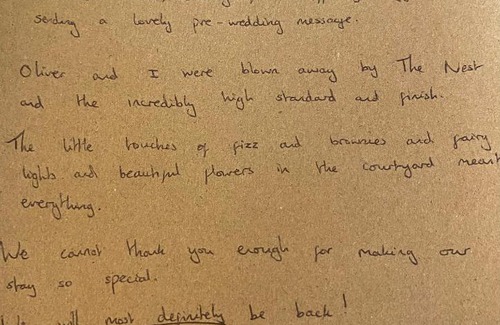 sending a lovely pre-wedding message.
Oliver and I were blown away by The Nest
and the incredibly high standard and finish.
The little touches of fizz and brownies and fairy
lights and beautiful flowers in the courtyard meant
everything.
We cannot thank you enough for making our
stay so special.
will most definitely be back!